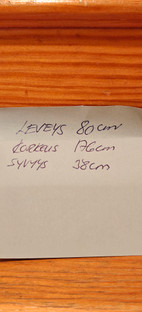 LEVEYS 80cm
KORKEUS 176cm
SYVYYS 38cm